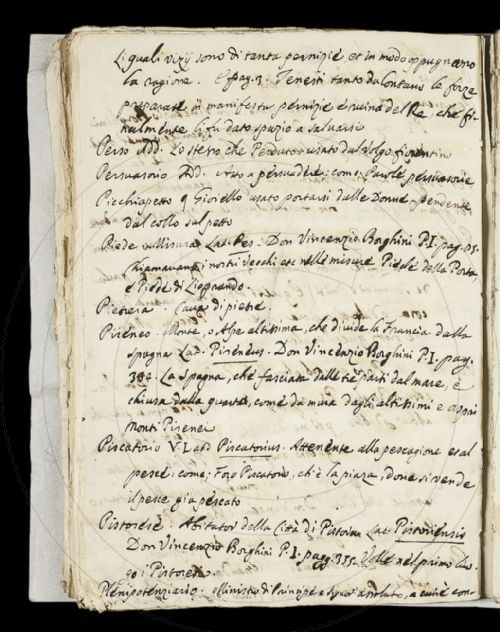 Li quali vizij sono di tanta pernizie et in modo oppugnano
la ragione. E pag. 3. Tenesti tanto da lontano le forze
preparate in manifesta pernizie e ruina del Re che fi-
nalmente li fu dato spazio a salvarsi
Perso Add. Lo stesso che Perduto usato dal volgo fiorentino
Persuasorio Ad. atto a persuadere: come; Parole persuasorie
Picchiapetto Gioiello usato portarsi dalle Donne pendente
dal collo sul petto
Piede Misura Lat. Pes. Don Vincenzio Borghini P. I. pag.
chiamavano i nostri vecchi etc nelle misure Piede della Porta,
e Piede di Lioprando.
Pietriera. Cava di pietre.
Pireneo. Monte, o Alpe altissima, che divide la Francia dalla
Spagna Lat. Pireneus. Don Vincenzio Borghini P. I. pag.
La Spagna, che fasciata dalle tre parti dal mare, e
chiusa dalla quarta, come da mura dagli altissimi e aspri
Monti Pirenei
Piscatorio V. L. Lat. Piscatorius. Attenente alla pescagione et al
pesce: come; Foro Piscatorio, ch'è la piazza, dove si vende
il pesce già pescato
Pistorese. Abitator della Città di Pistoia Lat. Pistoriensis
Don Vincenzio Borghini P. I. pag. 355. Volle nel primo luo-
go i Pistoresi.
Plenipotenziario. Ministro di Principe e Sigor assoluto, a cui è con-